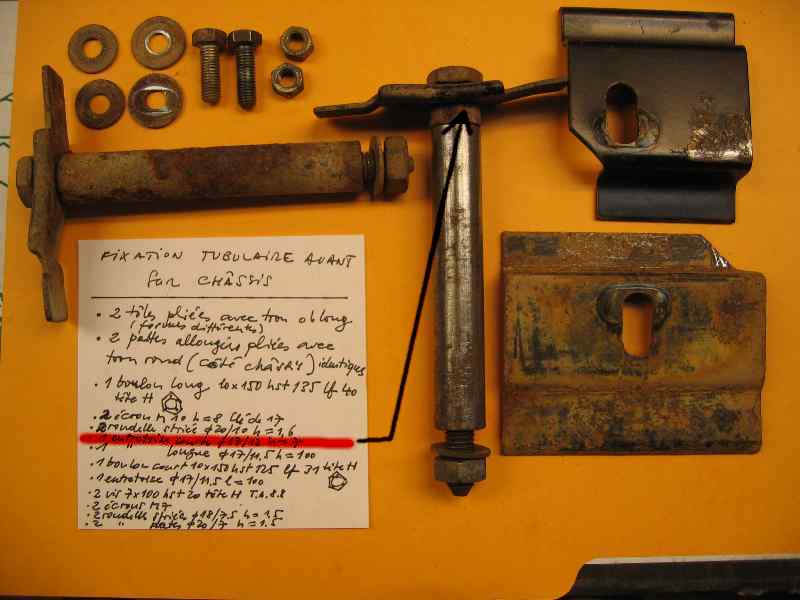 FIXATION TUBULAIRE AVANT
sur CHÂSSIS
• 2 tôles pliées avec trou oblong
(formes différentes)
• 2 pattes allongées pliées avec
trou rond (côté châssis) identiques
• 1 boulon long 10x150 hst 135 lf 40
tête H
• 2 écrous M10 h=8 Clé de 17
• 2 rondelles striée φ20/10 h=1,6
• 1 entretoise courte
• 1 " longue φ17/11,5 h=100
• 1 boulon court 10x150 hst 125 lf 31 tête H
• 1 entretoise φ17/11,5 l=100
• 2 vis 7x100 hst 20 tête H T.A.8.8
• 2 écrous M7
• 2 rondelles striée φ18/7.5 h=1.5
• 2 " plates φ20/7 h=1.5